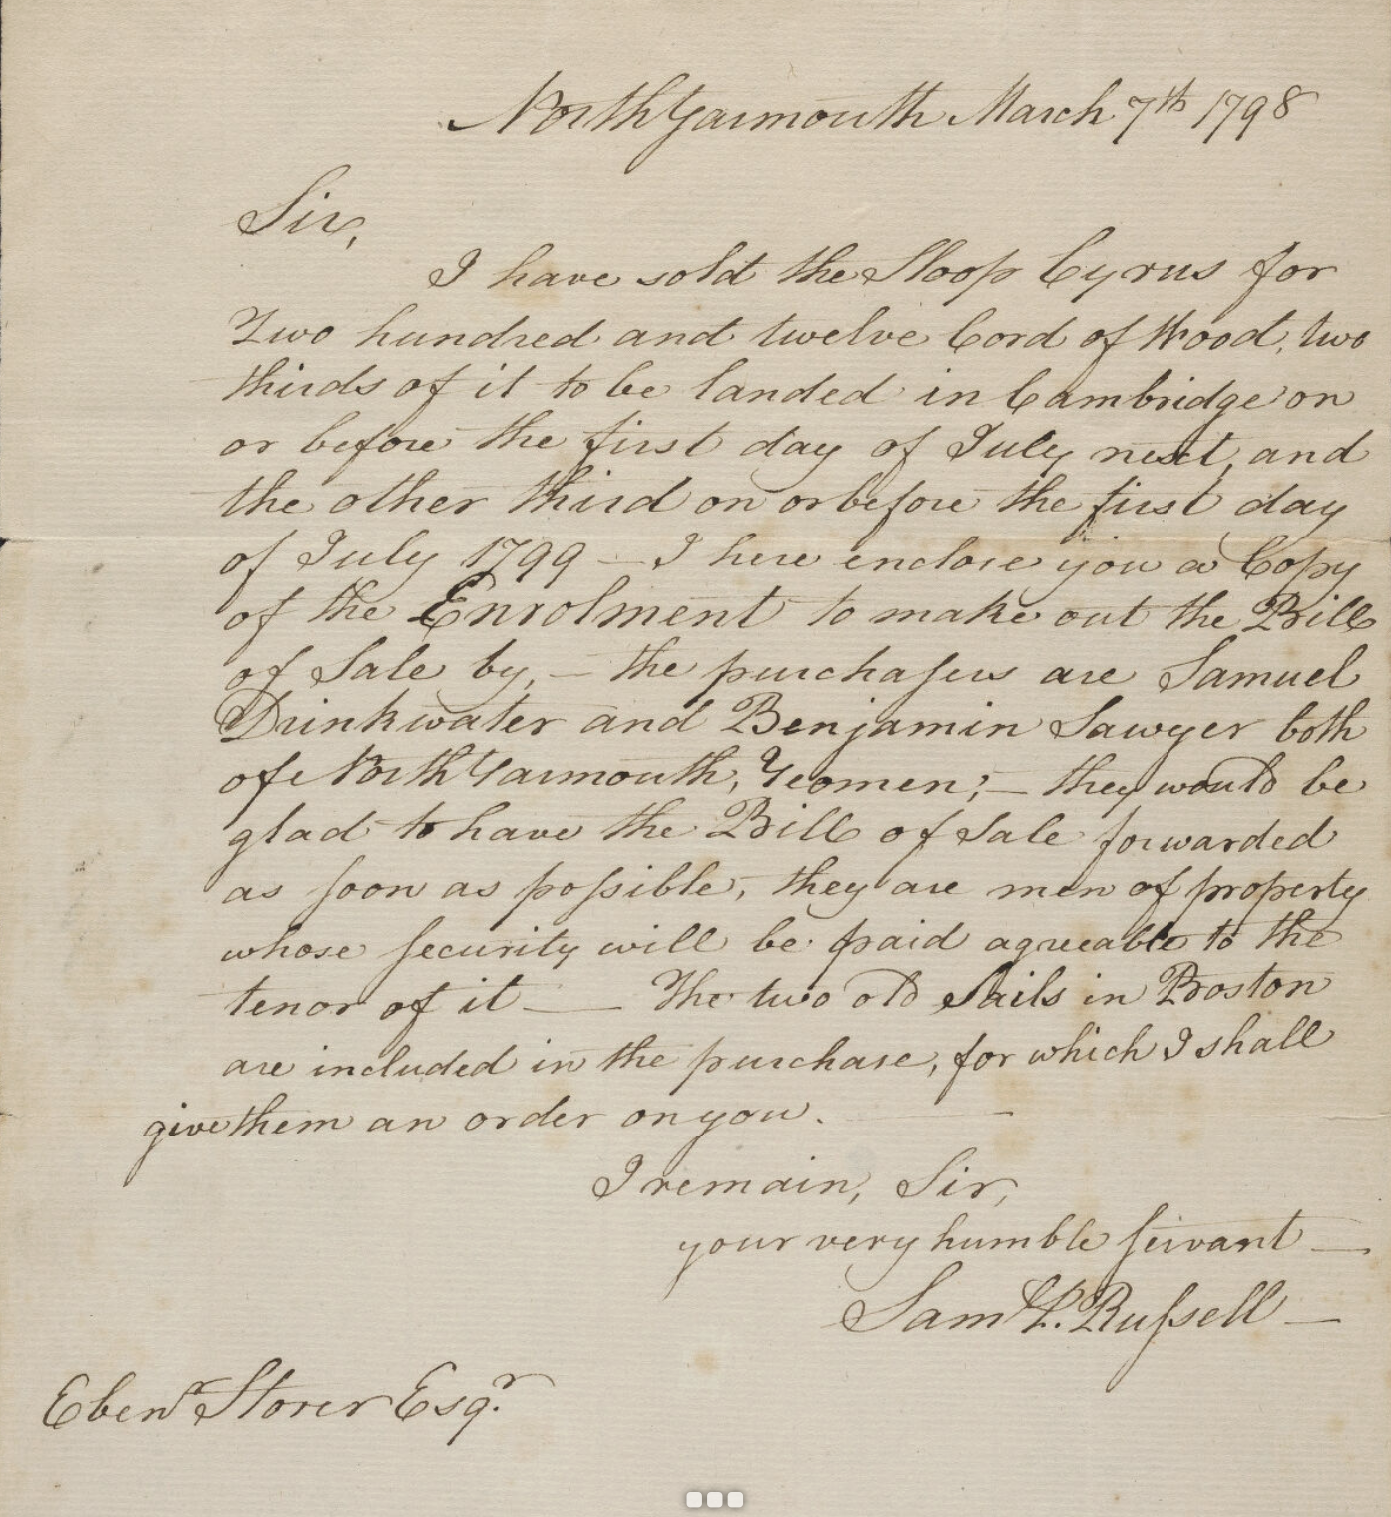 North Yarmouth March 7th 1798
Sir,
I have sold the Sloop Cyrus for
Two hundred and twelve Cord of Wood, two
thirds of it to be landed in Cambridge on
or before the first day of July next, and
the other third on or before the first day
of July 1799 — I here enclose you a Copy
of the Enrolment to make out the Bill
of Sale by, — the purchaſers are Samuel
Drinkwater and Benjamin Sawyer both
of North Yarmouth, Yeomen; — they would be
glad to have the Bill of Sale forwarded
as ſoon as poſsible, they are men of property
whose ſecurity will be paid agreeable to the
tenor of it — The two old Sails in Boston
are included in the purchase, for which I shall
give them an order on you. —
I remain, Sir,
your very humble ſervant —
Sam P. Ruſsell —
Ebenr Storer Esqr.